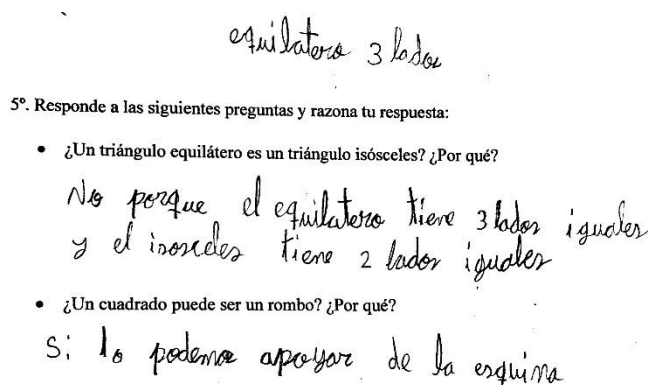 equilatero 3 lados
5º. Responde a las siguientes preguntas y razona tu respuesta:
• ¿Un triángulo equilátero es un triángulo isósceles? ¿Por qué?
No porque el equilatero tiene 3 lados iguales
y el isosceles tiene 2 lados iguales
• ¿Un cuadrado puede ser un rombo? ¿Por qué?
Si lo podemos apoyar de la esquina